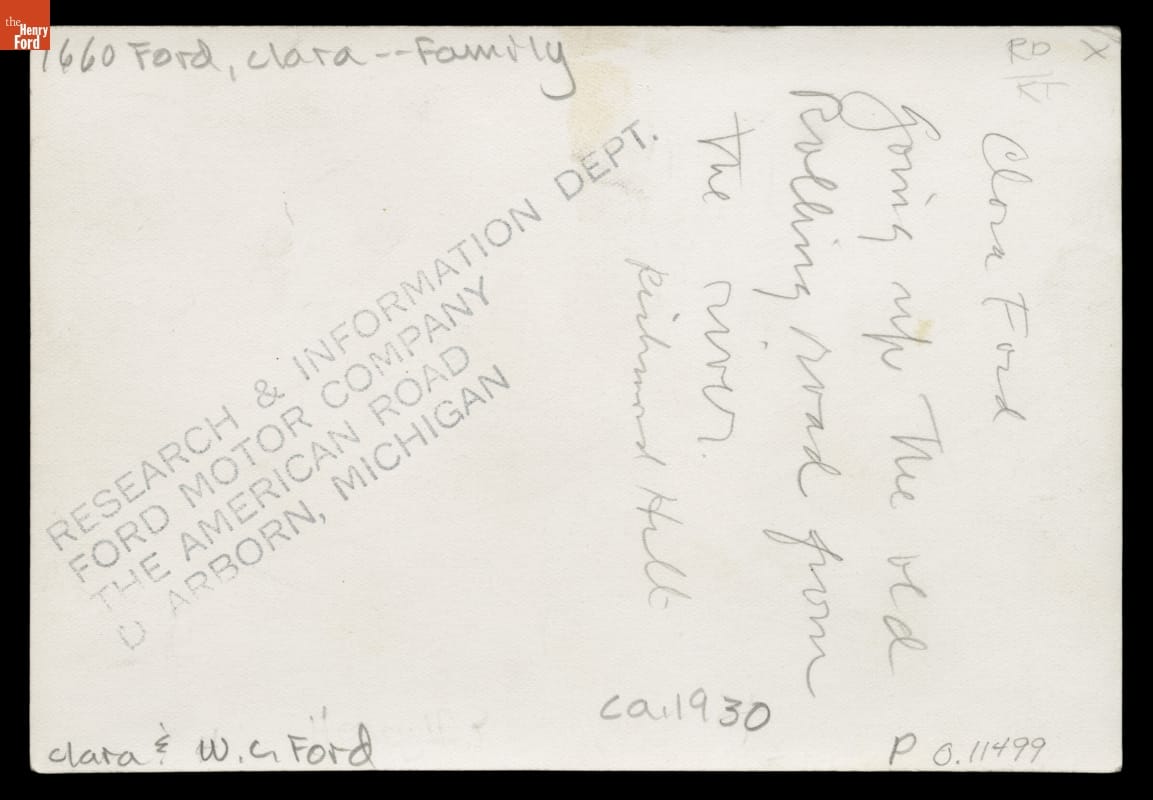 the
Henry
Ford
1660 Ford, Clara -- Family
RD
X
Clara Ford
Going up The old
Rolling road from
The river.
Richmond Hill
RESEARCH & INFORMATION DEPT.
FORD MOTOR COMPANY
THE AMERICAN ROAD
DEARBORN, MICHIGAN
ca. 1930
Clara & W. C. Ford
P O.11499